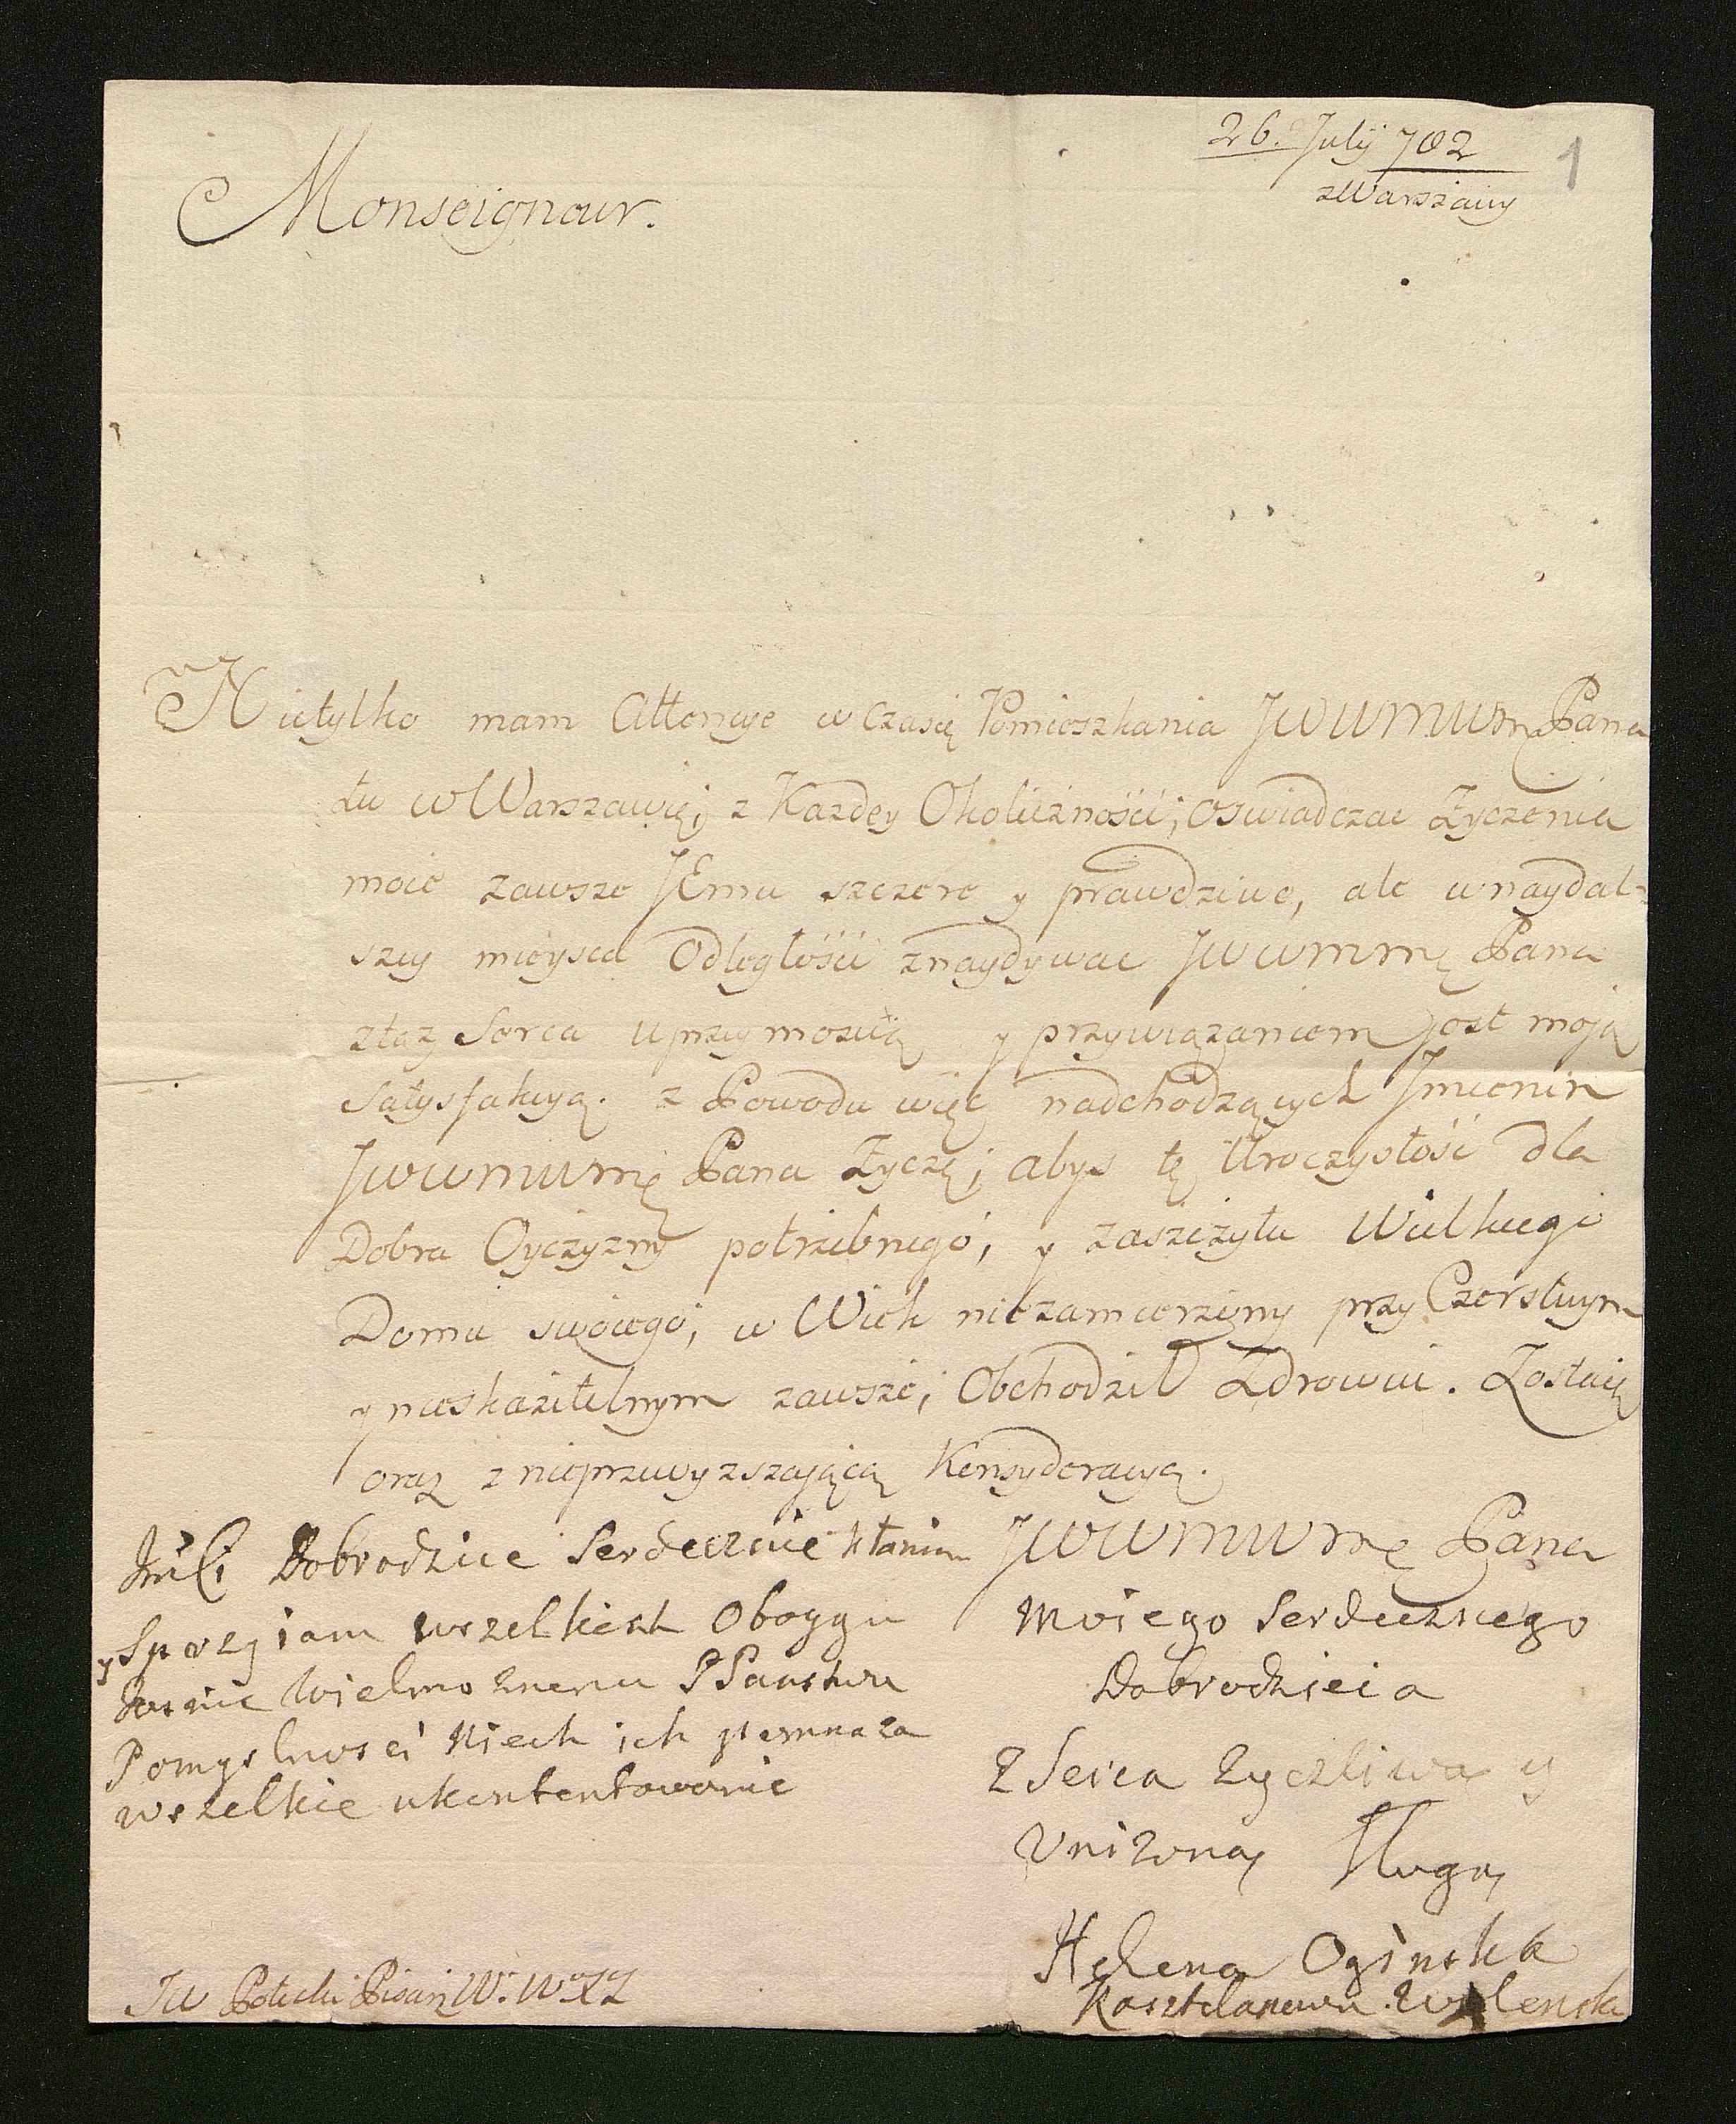 26. July 782
z Warszawy
1
Monseigneur.
Nietylko mam Attencye w Czasię Pomieszkania JWWMWMę Pana
tu w Warszawię; z Kazdey Okoliczności; oswiadczac Zyczenia
moie zawsze JEmu szczere y prawdziwe, ale w naydal=
szey mieysca Odległości znaydywac JWWMMę Pana
z taz Serca uprzymoscią y przywiązaniem jest moją
Satysfakcyą. z Powodu więc nadchodzących Jmienin
JWWMWMę Pana Zyczę; abys tę Uroczystość dla
Dobra Oyczyzny potrzebnego; y zaszczytu Wielkiego
Domu swoiego; w Wiek niezamierzony przy Czerstwym
y nieskazitelnym zawsze; Obchodził Zdrowiu. Zostaię
oraz z nieprzewyzszaiącą Konsyderacyą.
JWWMWMę Pana
Moiego Serdecznego
Dobrodzieia
z Serca zyczliwą y
Unizoną Sługą
Helena Ogińska
Kasztelanowa Wilenska
Dobrodzice Serdecznie kłaniam
y Sprzyiam wszelkich Oboygu
Jasnie Wielmoznemu PPaństwu
Pomyslnosci Niech ich pomnaza
wszelkie ukontentowanie
JW Potocki Pisarz W. W. XL